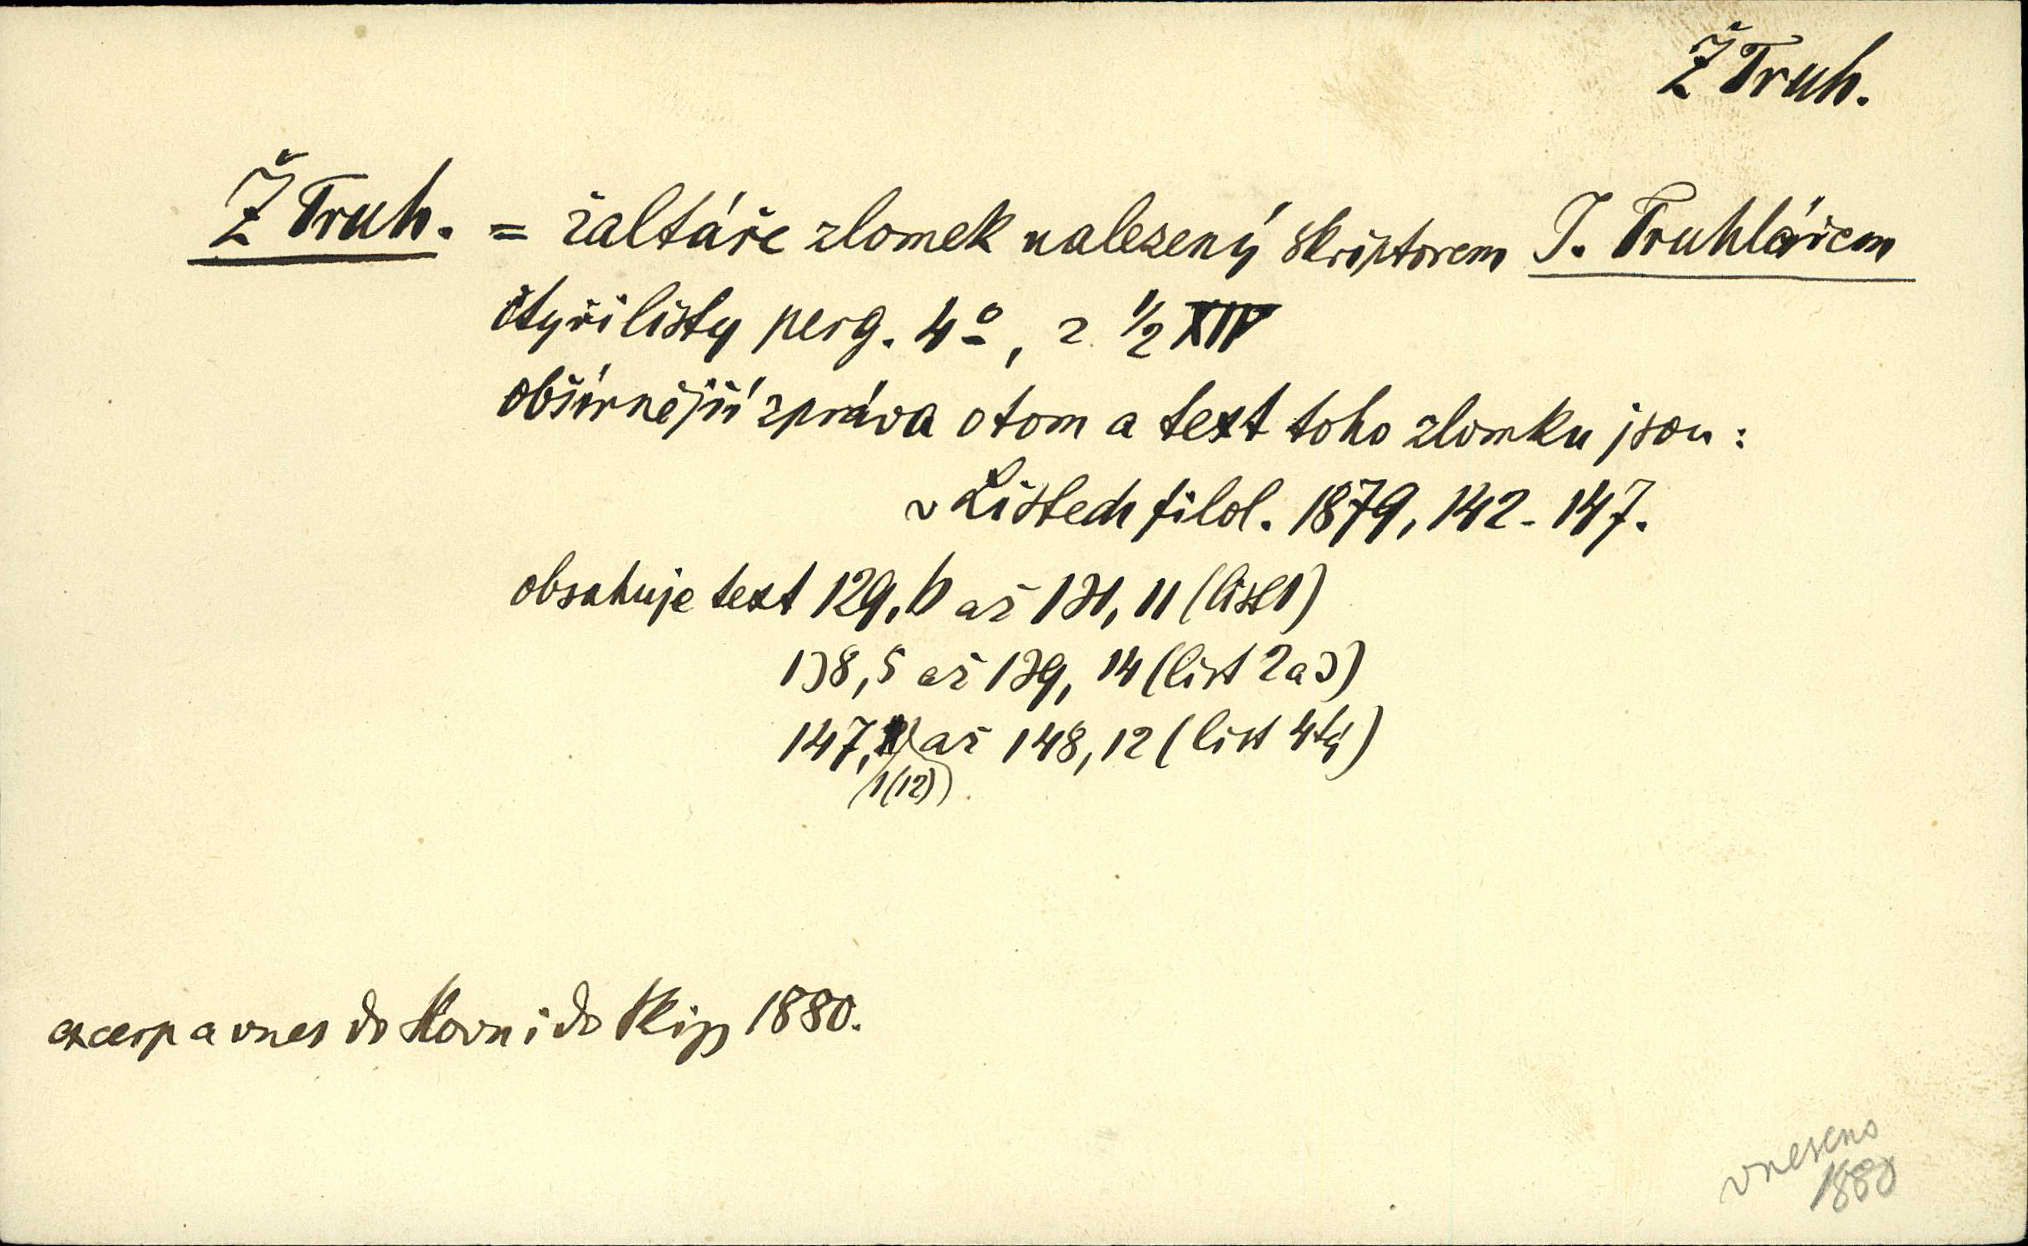 ŽTruh.
ŽTruh. = žaltáře zlomek nalezený skriptorem J. Truhlářem
čtyři listy perg. 4º, z 1/2 XIV
obšírnější zpráva o tom a text toho zlomku jsou:
v Listech filol. 1879, 142-147.
obsahuje text 129, 6 až 131, 11 (list 1)
138, 5 až 139, 14 (list 2 a 3)
147, až 148, 12 (list 4tý)
1(12)
excerp a vnes do Slovn i do Skipp 1880.
vneseno
1880